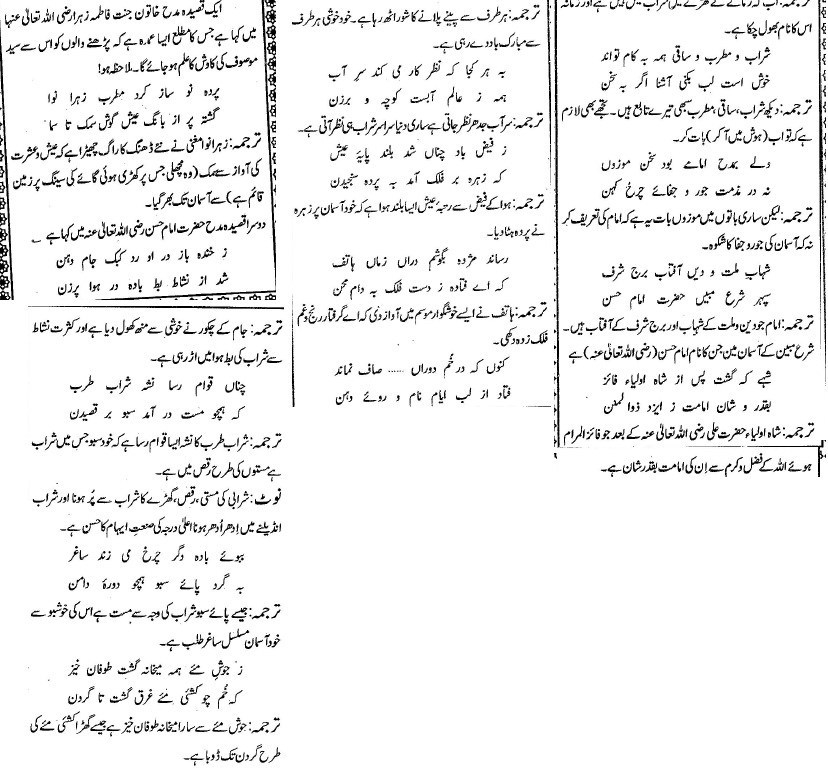 ایک قصیدہ مدح خاتون جنت فاطمہ زہرا رضی اللہ تعالیٰ عنہا
میں کہا ہے جس کا مطلع ایسا عمدہ ہے کہ پڑھنے والوں کو اس سے سید
موصوف کی کاوش کا علم ہوجائے گا۔ ملاحظہ ہو!
پردہ نو ساز کرد مطرب زہرا نوا
گشتہ پر از بانگ عیش گوش سمک تا سما
ترجمہ: زہرا نوا مغنی نے نئے ڈھنگ کا راگ چھیڑا ہے کہ عیش و عشرت
کی آواز سے سمک (وہ مچھلی جس پر کھڑی ہوئی گائے کی سینگ پر زمین
قائم ہے) سے آسمان تک بھر گیا۔
دوسرا قصیدہ مدح حضرت امام حسن رضی اللہ تعالیٰ عنہ میں کہا ہے
ز خندہ باز در او رد کبک جام دہن
شد از نشاط بط بادہ در ہوا پرزن
ترجمہ: جام کے چکور نے خوشی سے منھ کھول دیا ہے اور کثرت نشاط
سے شراب کی بط ہوا میں اڑ رہی ہے۔
چناں قوام رسا نشہ شراب طرب
کہ ہمچو مست در آمد سبو بر قصیدن
ترجمہ: شراب طرب کا نشہ ایسا قوام رسا ہے کہ خود سبو جس میں شراب
ہے مستوں کی طرح رقص میں ہے۔
نوٹ: شرابی کی مستی، رقص، گھڑے کا شراب سے پُر ہونا اور شراب
انڈیلنے میں اِدھر اُدھر ہونا اعلیٰ درجہ کی صنعت ایہام کا حسن ہے۔
ببوئے بادہ دگر چرخ می زند ساغر
بہ گرد پائے سبو ہمچو دورۂ دامن
ترجمہ: جیسے پائے سبو شراب کی وجہ سے مست ہے اس کی خوشبو سے
خود آسمان مسلسل ساغر طلب ہے۔
ز جوشِ مئے ہمہ میخانہ گشت طوفان خیز
کہ خُم چو کشئی مئے غرق گشت تا گردن
ترجمہ: جوش مئے سے سارا میخانہ طوفان خیز ہے جیسے گھڑا کشتئی مئے کی
طرح گردن تک ڈوبا ہے۔
ترجمہ: ہر طرف سے پینے پلانے کا شور اٹھ رہا ہے۔ خود خوشی ہر طرف
سے مبارک باد دے رہی ہے۔
بہ ہر کجا کہ نظر کار می کند سر آب
ہمہ ز عالم آبست کوچہ و برزن
ترجمہ: سر آب جدھر نظر جاتی ہے ساری دنیا سراسر شراب ہی نظر آتی ہے۔
ز فیض باد چناں شد بلند پایۂ عیش
کہ زہرہ بر فلک آمد بہ پردہ سنجیدن
ترجمہ: ہوا کے فیض سے رتبۂ عیش ایسا بلند ہوا ہے کہ خود آسمان پر زہرہ
نے پردہ ہٹا دیا۔
رساند مژدہ بگوشم دراں زماں ہاتف
کہ اے فتادہ ز دست فلک بہ دام محن
ترجمہ: ہاتف نے ایسے خوشگوار موسم میں آواز دی کہ اے گرفتار رنج و غم
فلک زدہ دکھی۔
کنوں کہ در خُم دوراں ...... صاف نماند
فتاد از لب ایام نام و روئے دہن
ترجمہ: اب کہ زمانے کے گھڑے میں شراب نہیں ہے اور زمانہ
اس کا نام بھول چکا ہے۔
شراب و مطرب و ساقی ہمہ بہ کام تواند
خوش است لب بکنی آشنا اگر بہ سخن
ترجمہ: دیکھ شراب، ساقی، مطرب سبھی تیرے تابع ہیں۔ تجھے بھی لازم
ہے کہ تو اب (ہوش میں آکر) بات کر۔
ولے بمدح امامے بود سخن موزوں
نہ در مذمت جور و جفائے چرخ کہن
ترجمہ: لیکن ساری باتوں میں موزوں بات یہ ہے کہ امام کی تعریف کر
نہ کہ آسمان کی جور و جفا کا شکوہ۔
شہاب ملت و دیں آفتاب برج شرف
سپہر شرع مبیں حضرت امام حسن
ترجمہ: امام جو دین و ملت کے شہاب اور برج شرف کے آفتاب ہیں۔
شرع مبین کے آسمان مین جن کا نام امام حسن (رضی اللہ تعالیٰ عنہ) ہے
شہے کہ گشت پس از شاہ اولیاء فائز
بقدر و شان امامت ز ایزد ذوالمنن
ترجمہ: شاہ اولیاء حضرت علی رضی اللہ تعالیٰ عنہ کے بعد جو فائز المرام
ہوئے اللہ کے فضل و کرم سے اِن کی امامت بقدر شان ہے۔